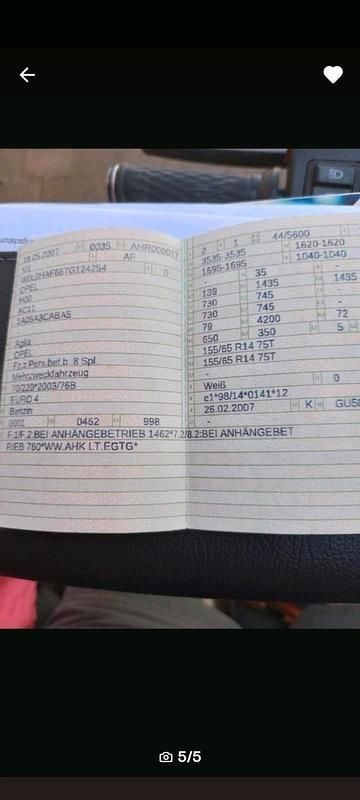 18.05.2007 0035 AHR000017
M1 AF
W0L0HAF667G124254 0
OPEL
H00
AC11
1A05A3CABA5
Agila
OPEL
Fz.z.Pers.bef.b. 8 Spl.
Mehrzweckfahrzeug
70/220*2003/76B
EURO 4
Benzin
0001 0462 998
F.1/F.2:BEI ANHÄNGEBETRIEB 1462*7.2/8.2:BEI ANHÄNGEBET
RIEB 760*WW.AHK LT.EGTG*
2 1 44/5600
3535-3535 1620-1620
1695-1695 1040-1040
- 35 -
139 1435 1435
730 745 -
730 745 -
79 4200 72
650 350 5
155/65 R14 75T
155/65 R14 75T
-
Weiß 0
e1*98/14*0141*12
26.02.2007 K
-
5/5